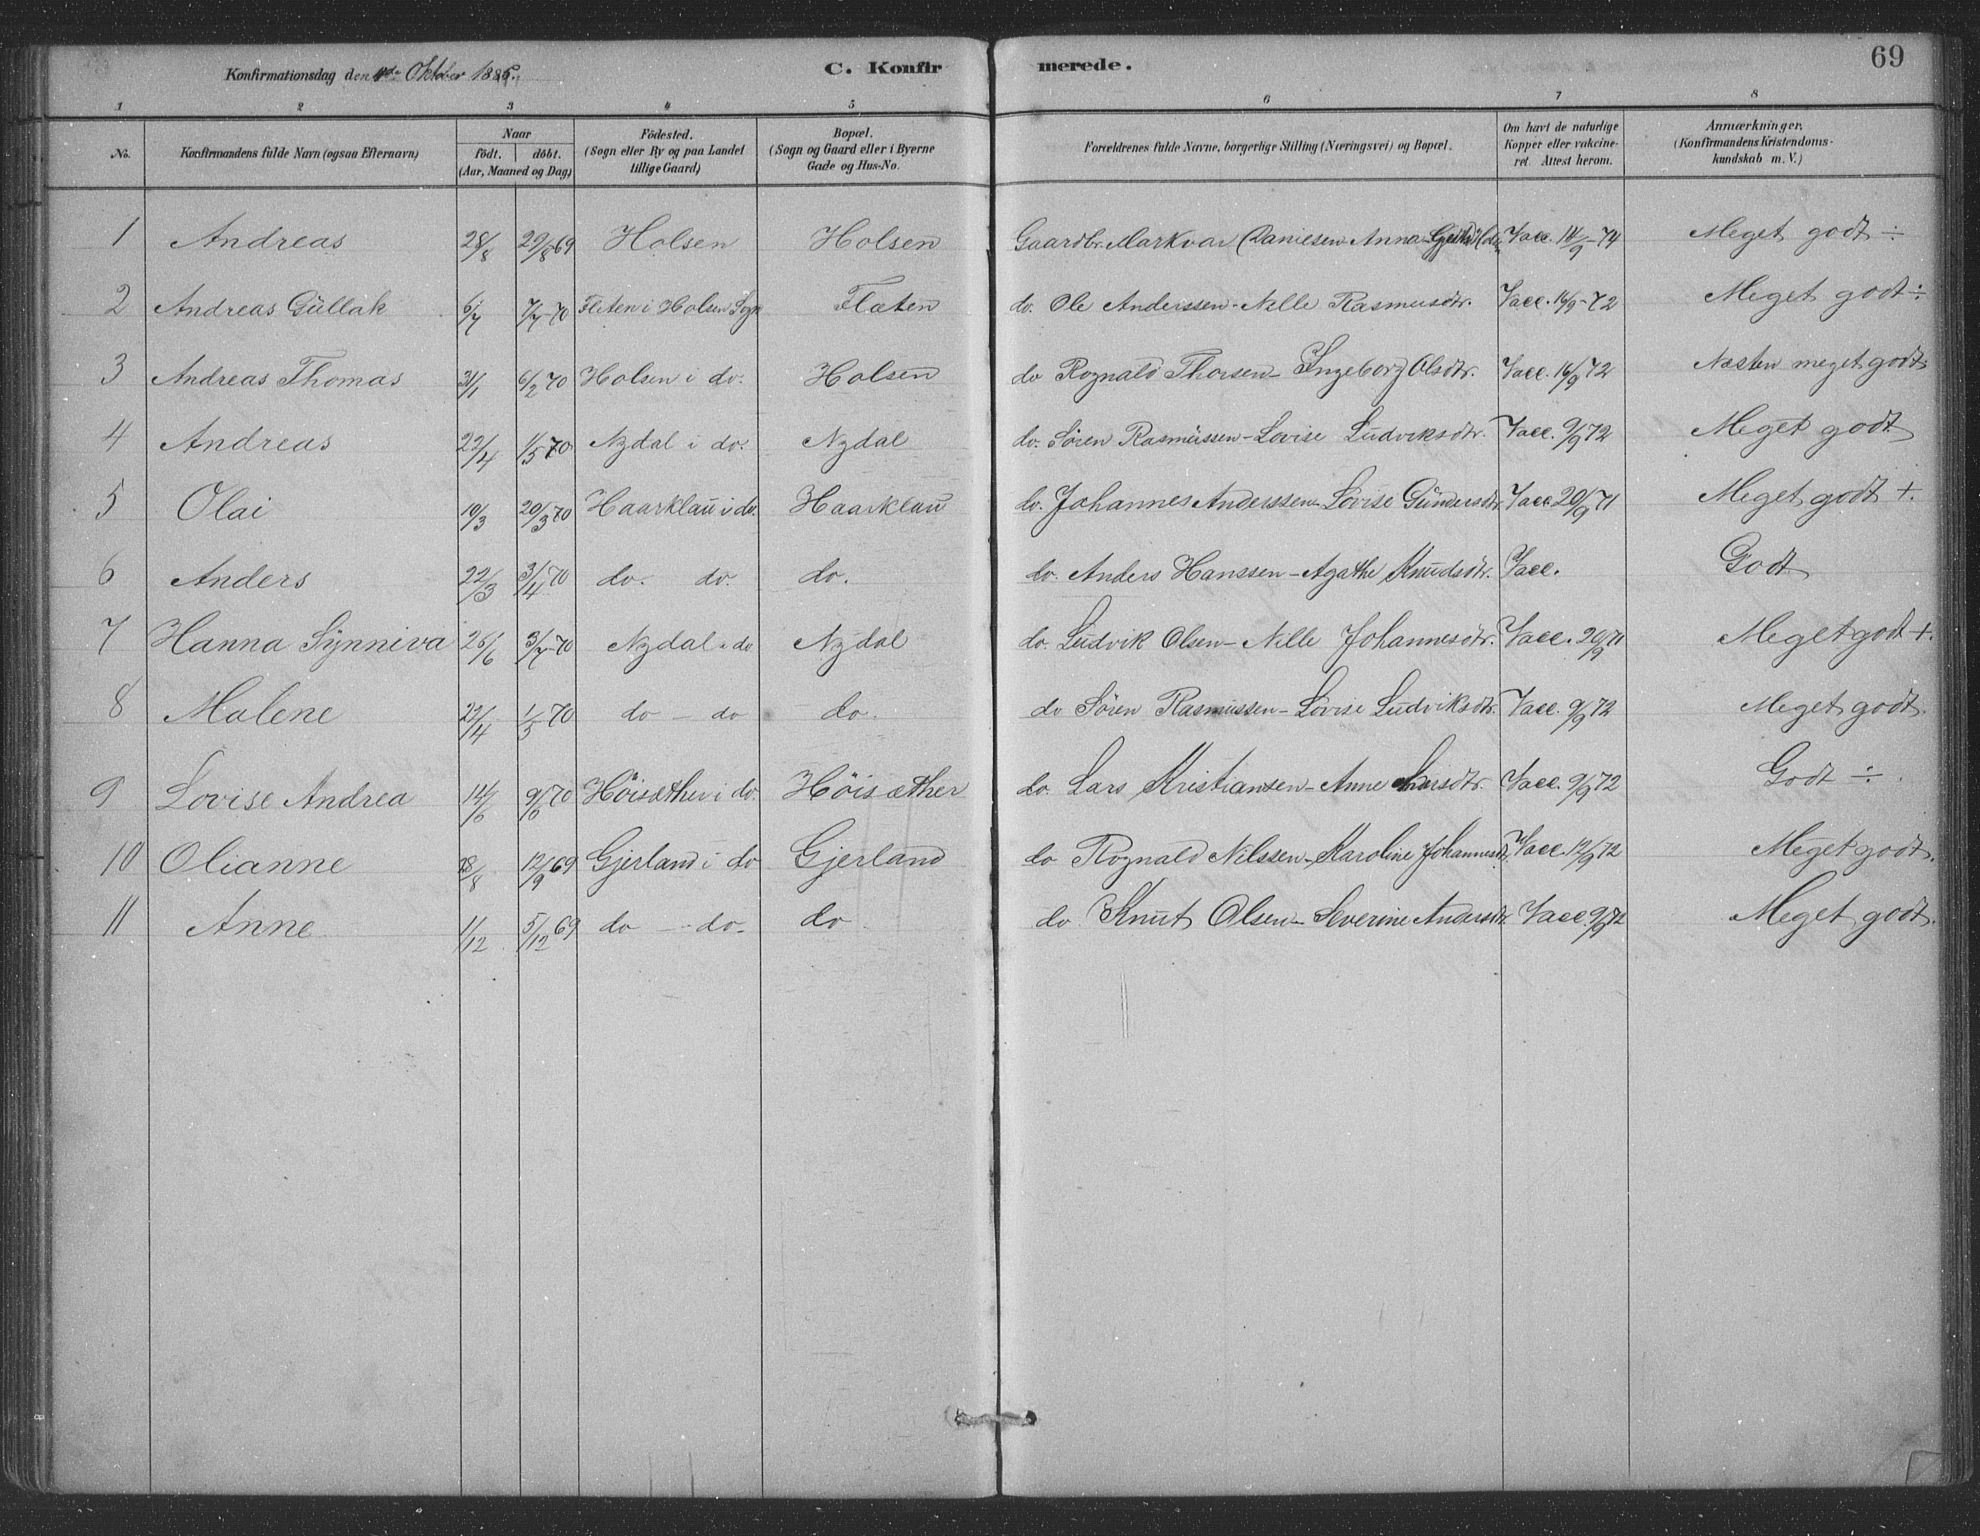 69
Konfirmationsdag den 4de Oktober 1885. C. Konfirmerede.
1 2 3 4 5 6 7 8
No. Konfirmandens fulde Navn (ogsaa Efternavn) Naar födt. döbt. (Aar, Maaned og Dag) Födested. (Sogn eller By og paa Landet tillige Gaard) Bopæl. (Sogn og Gaard eller i Byerne Gade og Hus-No. Forældrenes fulde Navne, borgerlige Stilling (Næringsvei) og Bopæl. Om havt de naturlige Kopper eller vakcineret. Attest herom. Anmærkninger. (Konfirmandens Kristendomskundskab m. V.)
1 Andreas 28/8 29/8 69 Holsen Holsen Gaardbr. Markvar Daniesen Anna Vacc. 14/9-74 Meget godt ÷
2 Andreas Güllak 6/7 7/7-70 Flæten i Holsen Sogn Flæten do. Ole Anderssen - Nille Rasmusdtr. Vacc. 16/9-72 Meget godt ÷
3 Andreas Thomas 31/1 6/2 70 Holsen i do. Holsen do Rognald Thorsen - Ingeborg Olsdtr. Vacc. 16/9 72 Næsten meget godt
4 Andreas 22/4 1/5 70 Nydal i do. Nydal do. Søren Rasmüssen - Lovise Ludviksdtr. Vacc. 9/9 72 Meget godt
5 Olai 10/3 20/3 70 Haarklau i do. Haarklau do. Johannes Anderssen - Lovise Gündersdtr Vacc 20/9 71 Meget godt +.
6 Anders 22/3 3/4 70 do. do. do. do. Anders Hanssen - Agathe Knudsdtr. Vacc. Godt
7 Hanna Synniva 26/6 3/7-70 Nydal i do Nydal do. Ludvik Olsen - Nille Johannesdtr. Vacc. 20/9 71 Meget godt +.
8 Malene 22/4 1/5 70 do - do do. do Søren Rasmüssen - Lovise Ludviksdtr. Vacc. 9/9 72 Meget godt.
9 Lovise Andrea 14/6 9/6 70 Höisæther i do. Höisæther do. Lars Kristiansen - Anne Larsdtr. Vacc. 9/9 72 Godt ÷.
10 Olianne 28/8 12/9 69 Gjerland i do Gjerland do Rognald Nilssen - Karoline Johannesdtr. Vacc. 12/9 72 Meget godt.
11 Anne 1/12 5/12 69 do - do - do do Knut Olsen - Severine Andersdtr. Vacc. 9/9 72 Meget godt.